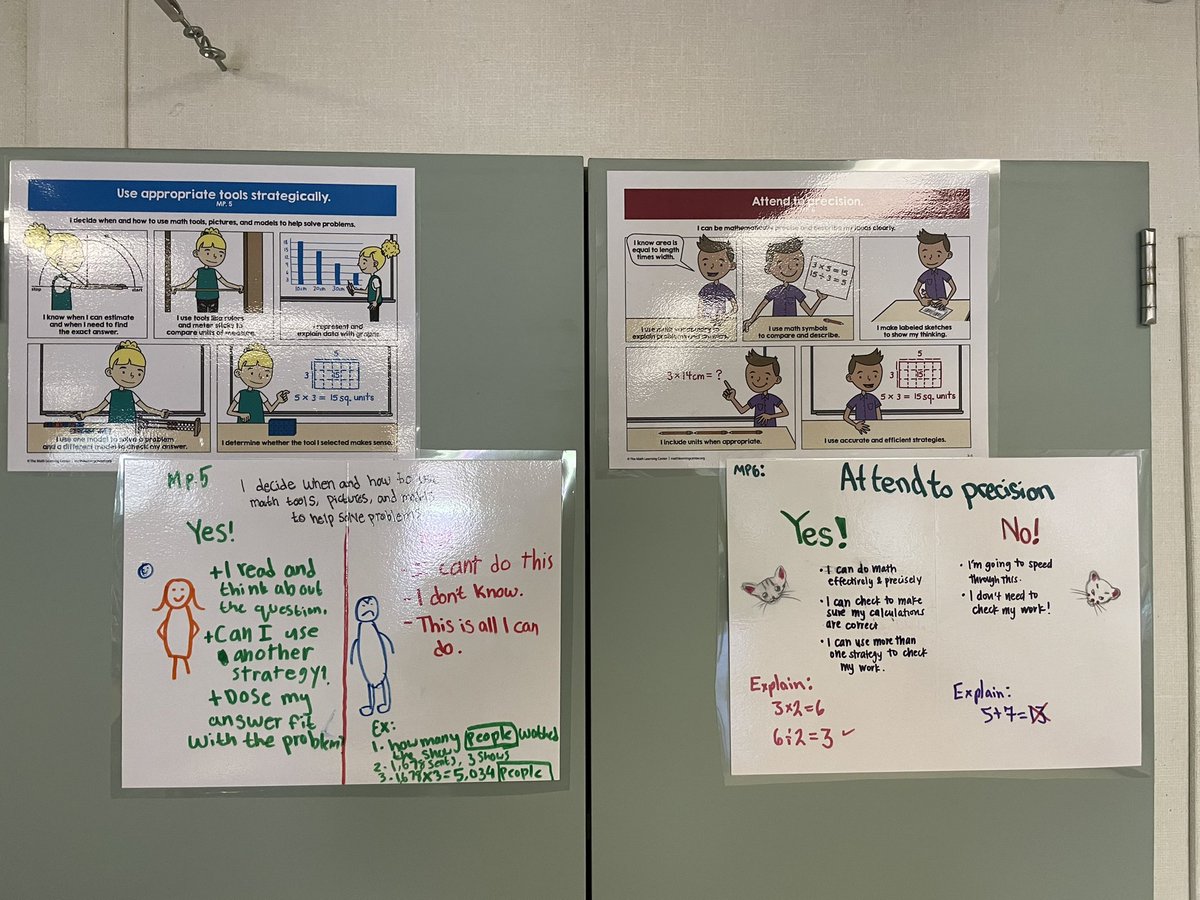 Use appropriate tools strategically.
MP. 5
I decide when and how to use math tools, pictures, and models to help solve problems.
stop
start
I know when I can estimate
and when I need to find
the exact answer.
I use tools like rulers
and meter sticks to
compare units of measure.
10cm 20cm 30cm
I represent and
explain data with graphs.
I use one model to solve a problem
and a different model to check my answer.
5
3
15
5 × 3 = 15 sq. units
I determine whether the tool I selected makes sense.
© The Math Learning Center | mathlearningcenter.org
Attend to precision.
I can be mathematically precise and describe my ideas clearly.
I know area is
equal to length
times width.
I use math vocabulary to
explain problems and
3 × 5 = 15
15 ÷ 3 = 5
I use math symbols
to compare and describe.
I make labeled sketches
to show my thinking.
3 × 14cm = ?
I include units when appropriate.
5
3
15
5 × 3 = 15 sq. units
I use accurate and efficient strategies.
© The Math Learning Center | mathlearningcenter.org
MP.5
I decide when and how to use
math tools, pictures, and models
to help solve problems
Yes!
+I read and
think about
the question.
+Can I use
another
strategy?
+Dose my
answer fit
with the problem?
cant do this
- I don't know.
- This is all I can
do.
Ex:
1. how many people watched
the show
2. 1,678 seats, 3 shows
3. 1,678×3=5,034 people
MP6:
Attend to precision
Yes!
• I can do math
effectirely & precisely
• I can check to make
sure my calculations
are correct
• I can use more than
one strategy to check
my work.
Explain:
3×2=6
6÷2=3 ✓
No!
• I'm going to speed
through this.
• I don't need to
check my work!
Explain:
5+7=13